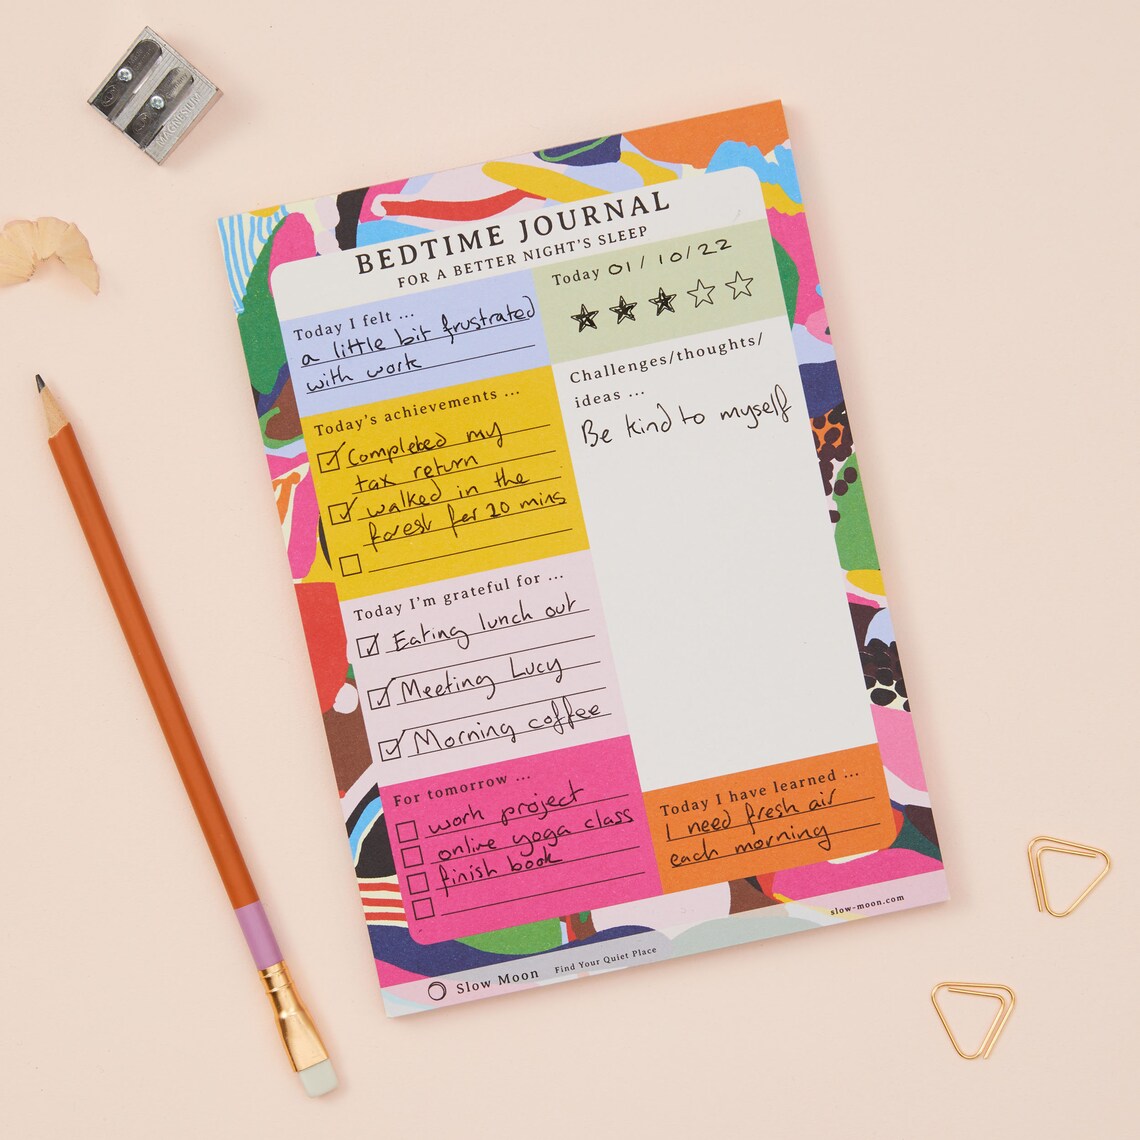 MAGNESIUM
BEDTIME JOURNAL
FOR A BETTER NIGHT'S SLEEP
Today I felt ...
a little bit frustrated
with work
Today 01/10/22
Today's achievements ...
Completed my
tax return
walked in the
forest for 20 mins
Today I'm grateful for ...
Eating lunch out
Meeting Lucy
Morning coffee
For tomorrow ...
work project
online yoga class
finish book
Challenges/thoughts/
ideas ...
Be kind to myself
Today I have learned ...
I need fresh air
each morning
Slow Moon
Find Your Quiet Place
slow-moon.com